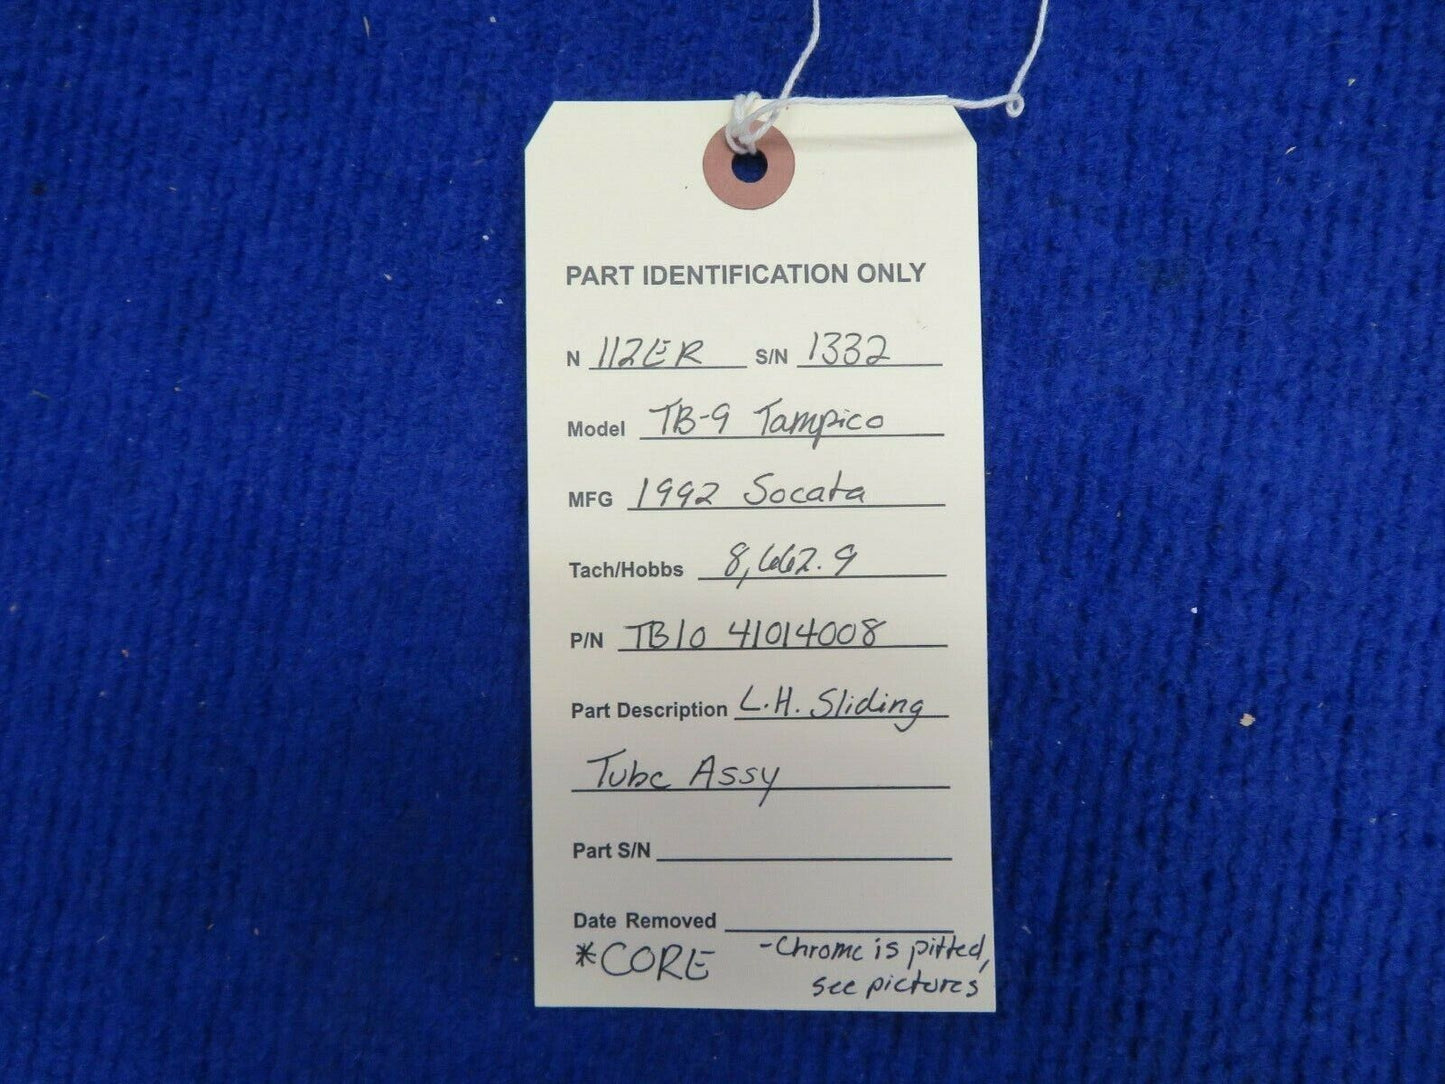 PART IDENTIFICATION ONLY
N 112ER S/N 1332
Model TB-9 Tampico
MFG 1992 Socata
Tach/Hobbs 8,662.9
P/N TB10 41014008
Part Description L.H. Sliding
Tube Assy
Part S/N
Date Removed
*CORE -Chrome is pitted,
see pictures